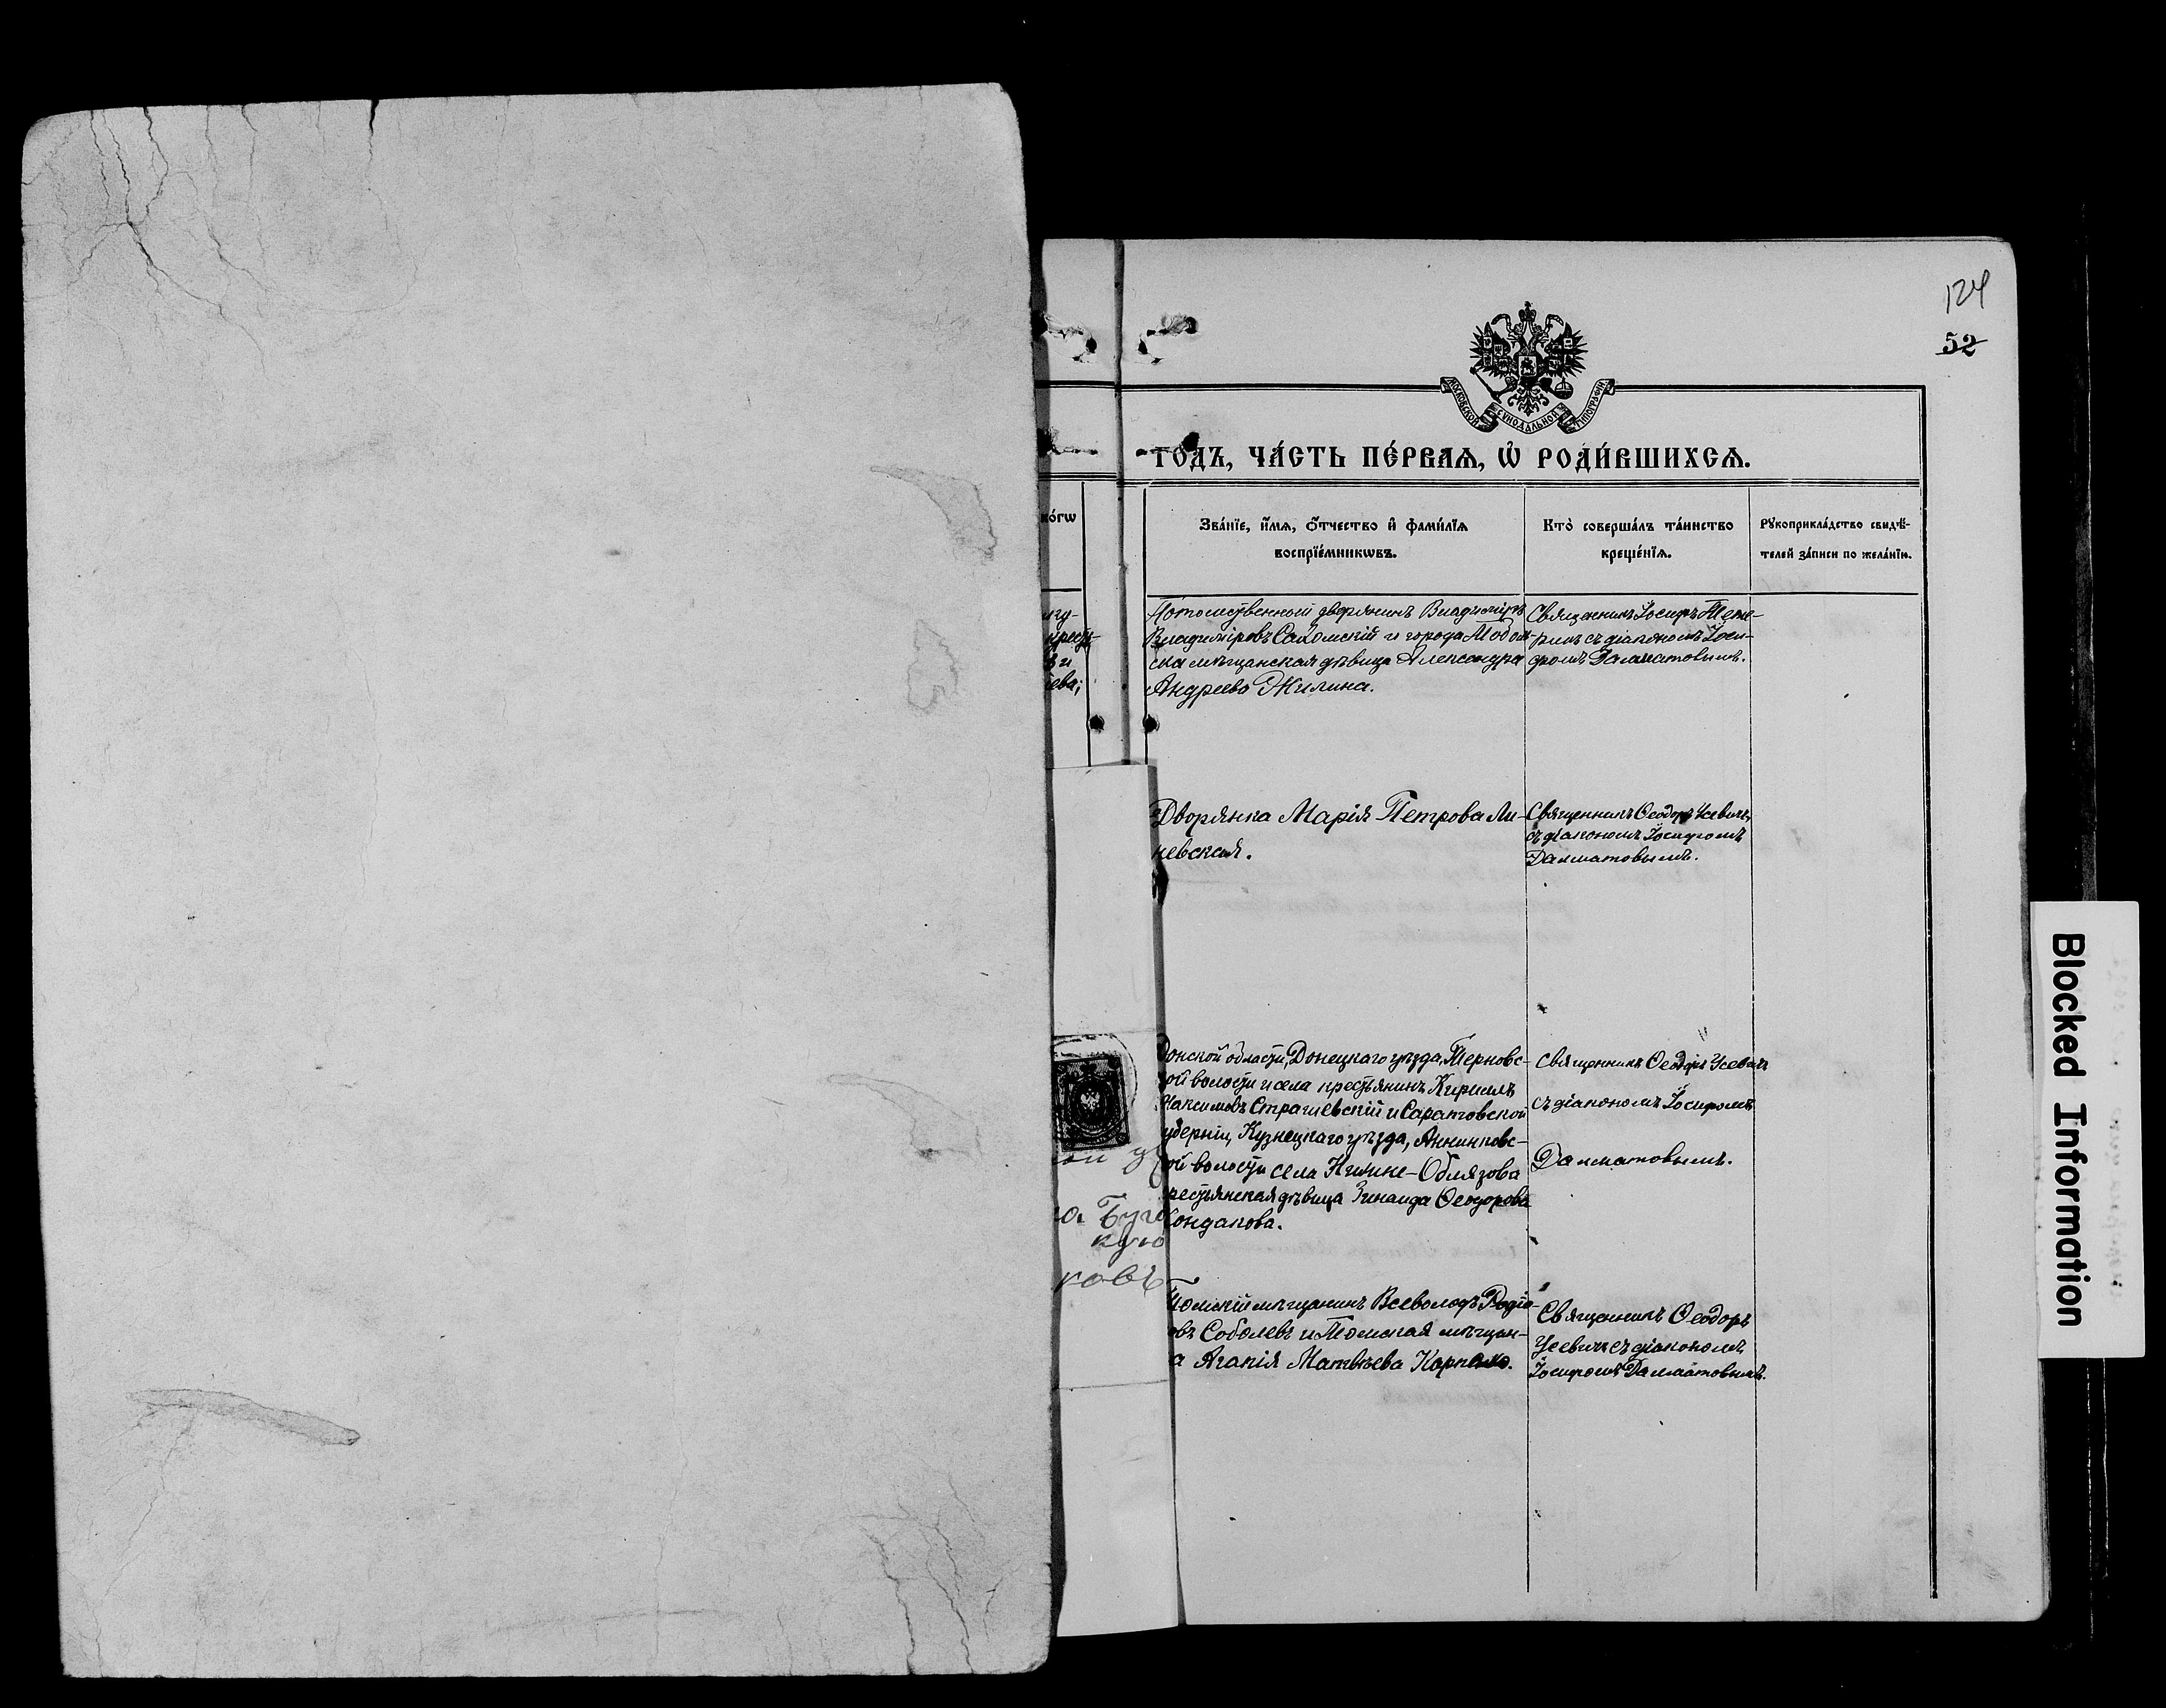 124
52
МОСКОВСКОЙ СУНОДАЛЬНОЙ ТИПОГРАФІИ
ГО́ДЪ, ЧА́СТЬ ПЕ́РВАѦ, Ѡ҆ РОДИ́ВШИХСѦ.
ко́гѡ
Зва́нїе, и҆́мѧ, ѻ҆́тчество и҆ фами́лїѧ
воспрїе́мникѡвъ.
Кто̀ соверша́лъ та́инство
креще́нїѧ.
Рꙋкоприкла́дство свидѣ́-
телей за́писи по жела́нїю.
Потомственный дворянинъ Владиміръ
Владиміровъ Сахомскій и города Тоболь-
ска мѣщанская дѣвица Александра
Андреева Жилина.
Священникъ Іосифъ
съ діакономъ Іоси-
фомъ Далматовымъ.
ева;
Дворянка Марія Петрова Ли-
невская.
Священникъ Ѳеодоръ Усевичъ
съ діакономъ Іосифомъ
Далматовымъ.
Донской области, Донецкаго уѣзда, Терновс-
ой волости и села крестьянинъ Кириллъ
Максимовъ Страшевскій и Саратовской
губерніи, Кузнецкаго уѣзда, Аннинковс-
ой волости села Нижне-Облязова
крестьянская дѣвица Зинаида Ѳеодорова
Кондакова.
Священникъ Ѳеодоръ Усевичъ
съ діакономъ Іосифомъ
Далматовымъ.
ковъ
Томскій мѣщанинъ Всеволодъ Родіо-
овъ Соболевъ и Томская мѣщан-
а Агапія Матвѣева
Священникъ Ѳеодоръ
Усевичъ съ діакономъ
Іосифомъ Далматовымъ.
Blocked Information